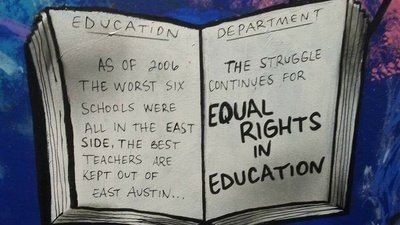 EDUCATION
AS OF 2006
THE WORST SIX
SCHOOLS WERE
ALL IN THE EAST
SIDE, THE BEST
TEACHERS ARE
KEPT OUT OF
EAST AUSTIN...
DEPARTMENT
THE STRUGGLE
CONTINUES FOR
EQUAL
RIGHTS
IN
EDUCATION